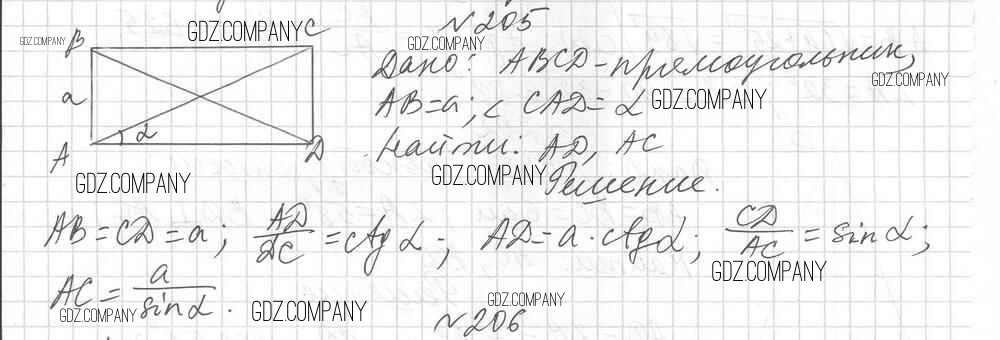 N 205
B GDZ.COMPANY C
GDZ.COMPANY
GDZ.COMPANY
Дано: ABCD - прямоугольник,
GDZ.COMPANY
a
AB = a; ∠ CAD = α GDZ.COMPANY
A α D
Найти: AD, AC
GDZ.COMPANY
GDZ.COMPANY
Решение.
AB = CD = a; AD/DC = ctg α; AD = a · ctg α; CD/AC = sin α;
GDZ.COMPANY
AC = a/sin α.
GDZ.COMPANY
GDZ.COMPANY
GDZ.COMPANY
N 206